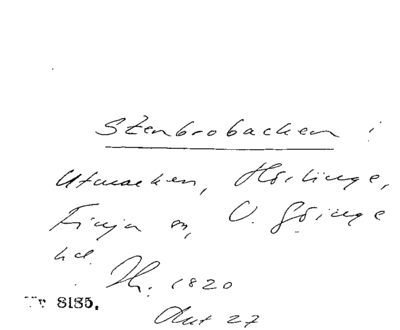 Stenbrobacken i
Utmarken, Hörlinge,
Finja sn, V. Göinge
hd. Th. 1820
Nr 8185. Ant 27